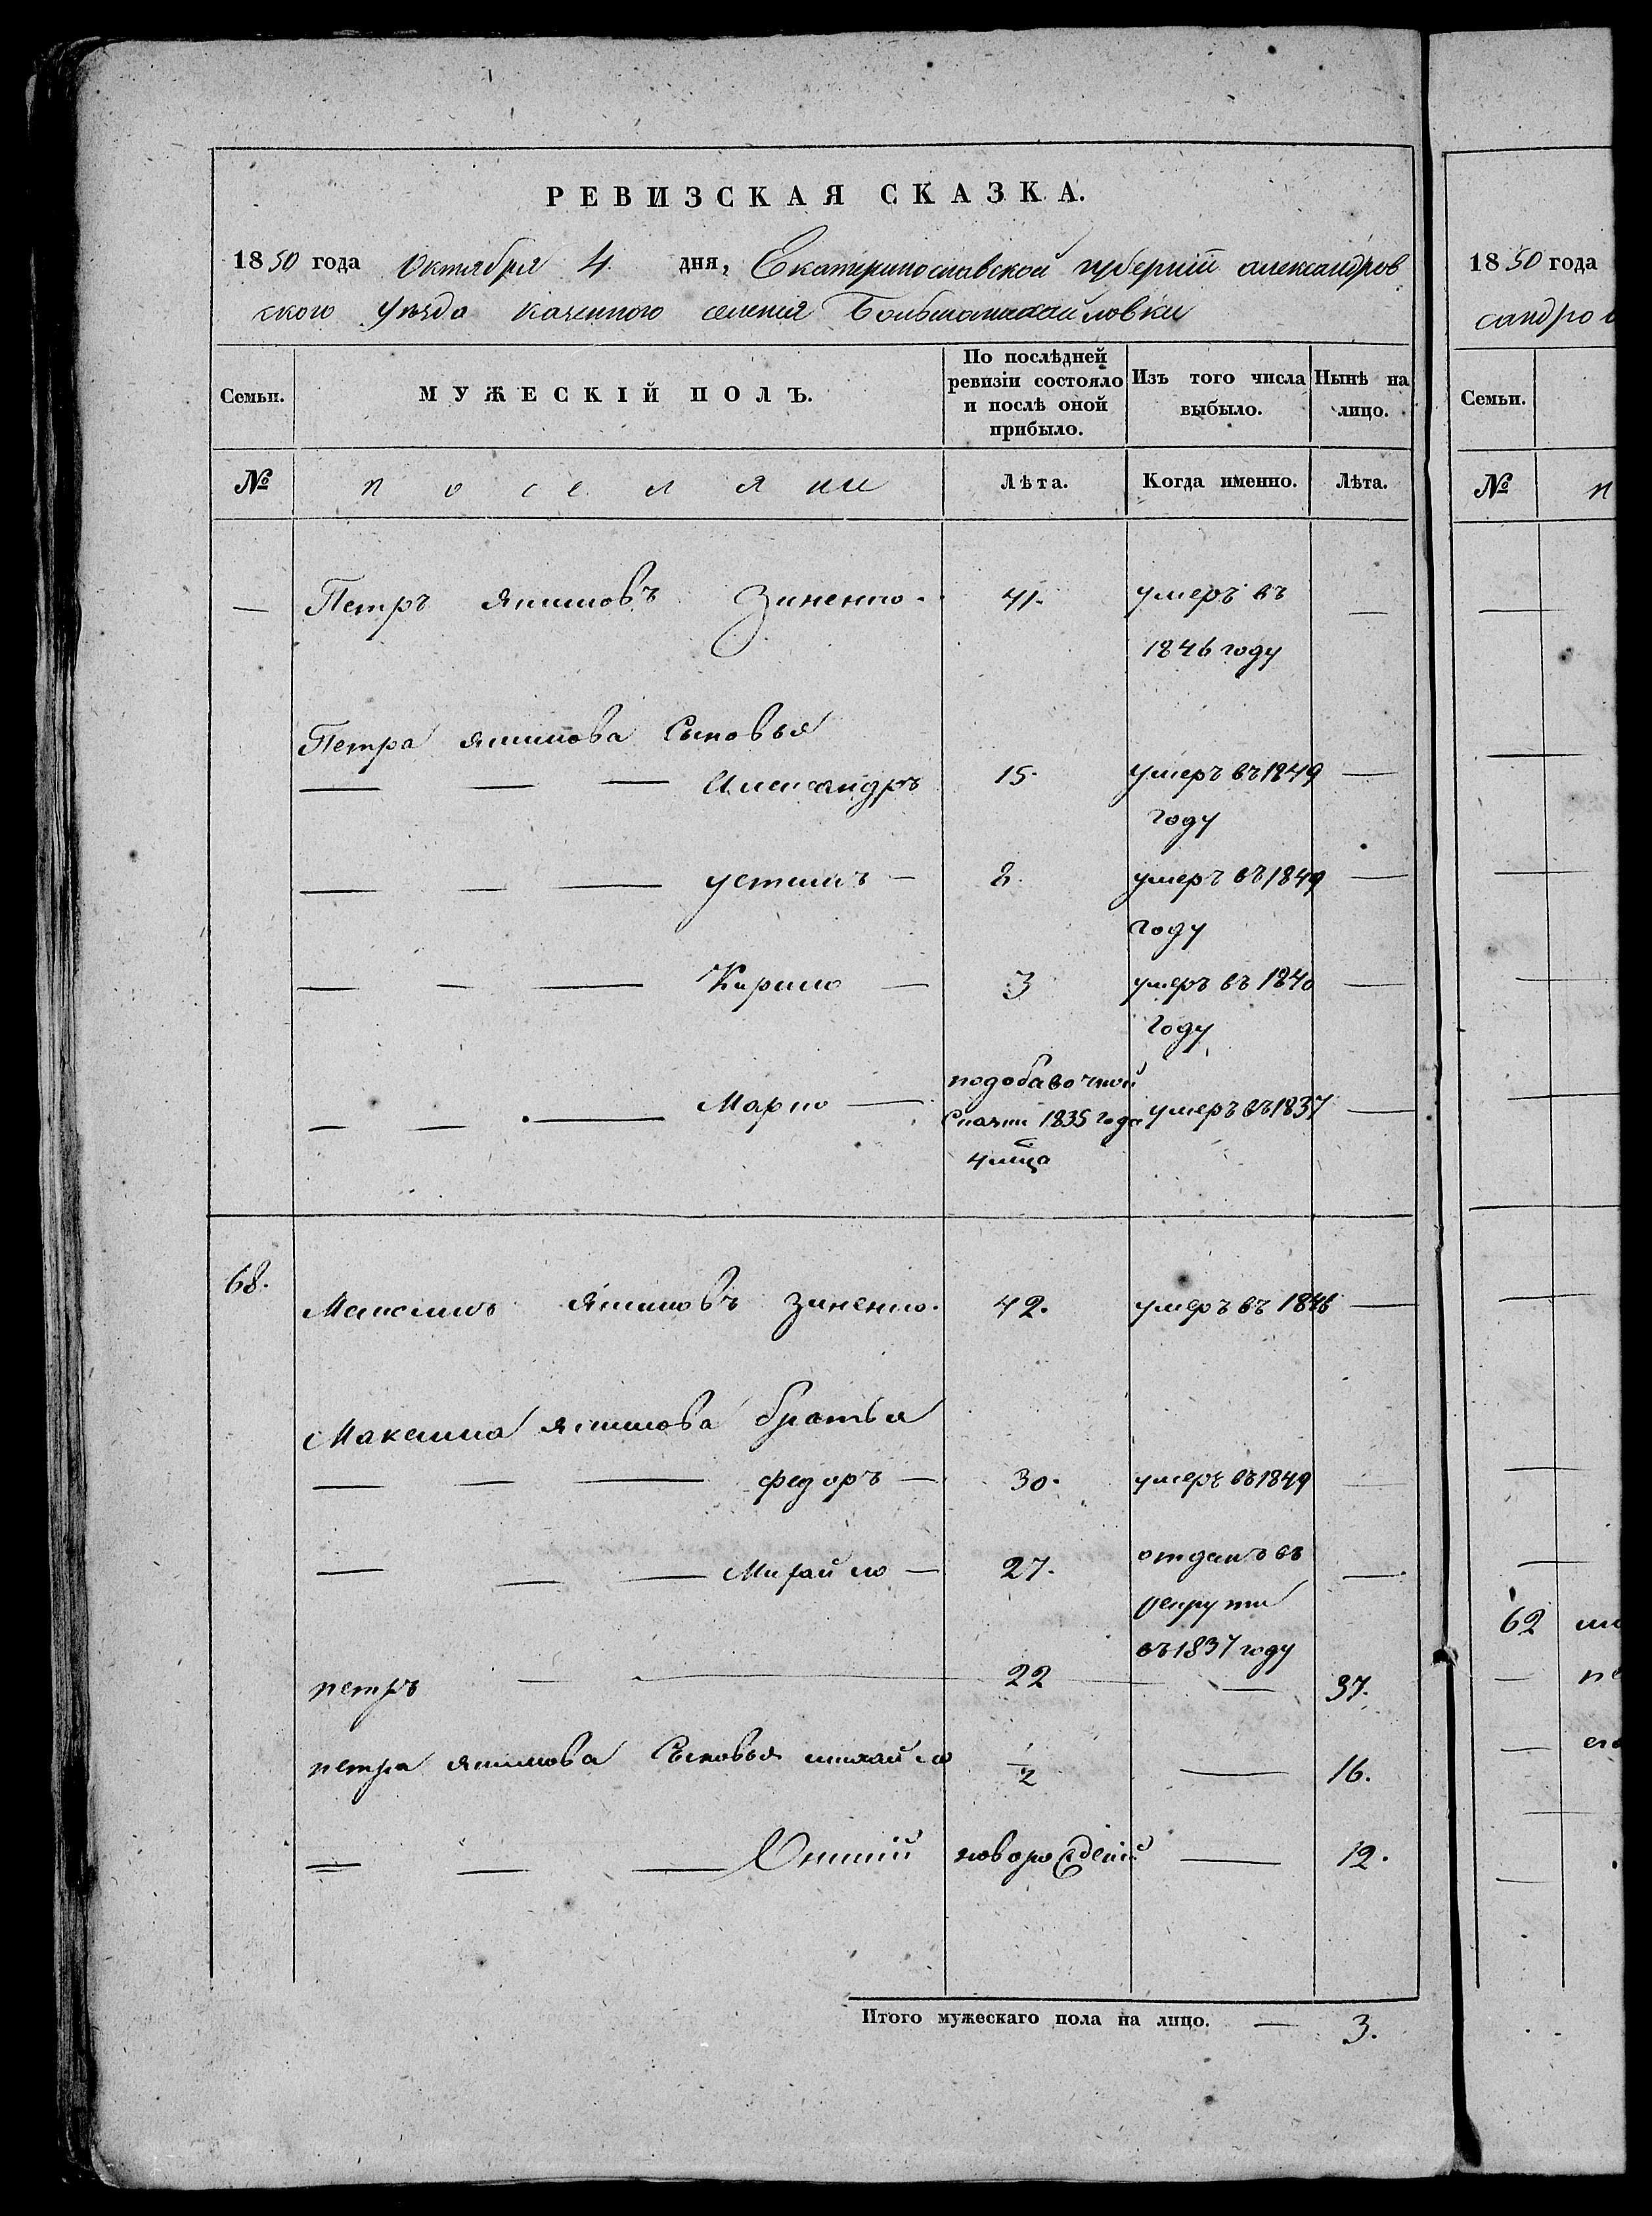 РЕВИЗСКАЯ СКАЗКА.
1850 года Октября 4 дня, Екатеринославской губерніи александров
ского Уѣзда казенного селенія Большомихайловки
Семьи. МУЖЕСКІЙ ПОЛЪ. По послѣдней ревизіи состояло и послѣ оной прибыло. Изъ того числа выбыло. Нынѣ на лицо.
№ поселяне Лѣта. Когда именно. Лѣта.
— Петръ Якимовъ Зиненко 41. умеръ въ —
1846 году
Петра якимова Сыновья
Александръ 15. умеръ въ 1849 —
году
устимъ — 8. умеръ въ 1849 —
году
Кирило — 3 умеръ въ 1840 —
году
Марко — подобавочной
Сказки 1835 года умеръ въ 1837 —
4 мца
68. Максимъ Якимовъ зиненко. 42. умеръ въ 1846 —
Максима якимова братья
федоръ — 30. умеръ въ 1849 —
Михайло — 27. отданъ въ —
рекруты
въ 1837 году
петръ — 22 — 37.
петра якимова Сыновья михайло 1/2 — 16.
— — — — 12.
Итого мужескаго пола на лицо. — 3.
1850 года
сандро
Семьи.
№ п
62